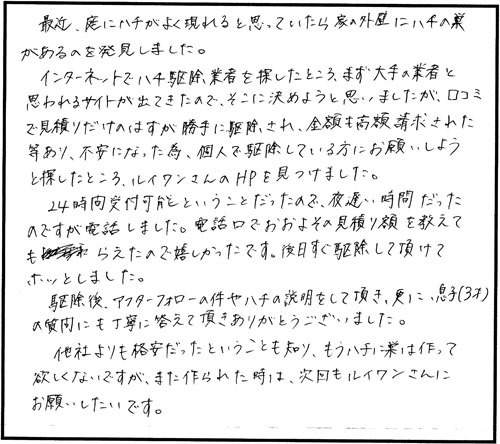 最近、庭にハチがよく現れると思っていたら家の外壁にハチの巣
があるのを発見しました。
インターネットでハチ駆除業者を探したところ、まず大手の業者と
思われるサイトが出てきたので、そこに決めようと思いましたが、口コミ
で見積りだけのはずが勝手に駆除され、金額も高額請求された
等あり、不安になった為、個人で駆除している方にお願いしよう
と探したところ、ルイワンさんのHPを見つけました。
24時間受付可能ということだったので、夜遅い時間だった
のですが電話しました。電話口でおおよその見積り額を教えて
もらえたので嬉しかったです。後日すぐ駆除して頂けて
ホッとしました。
駆除後、アフターフォローの件やハチの説明をして頂き、更に、息子(3才)
の質問にも丁寧に答えて頂きありがとうございました。
他社よりも格安だったということも知り、もうハチに巣は作って
欲しくないですが、また作られた時は、次回もルイワンさんに
お願いしたいです。